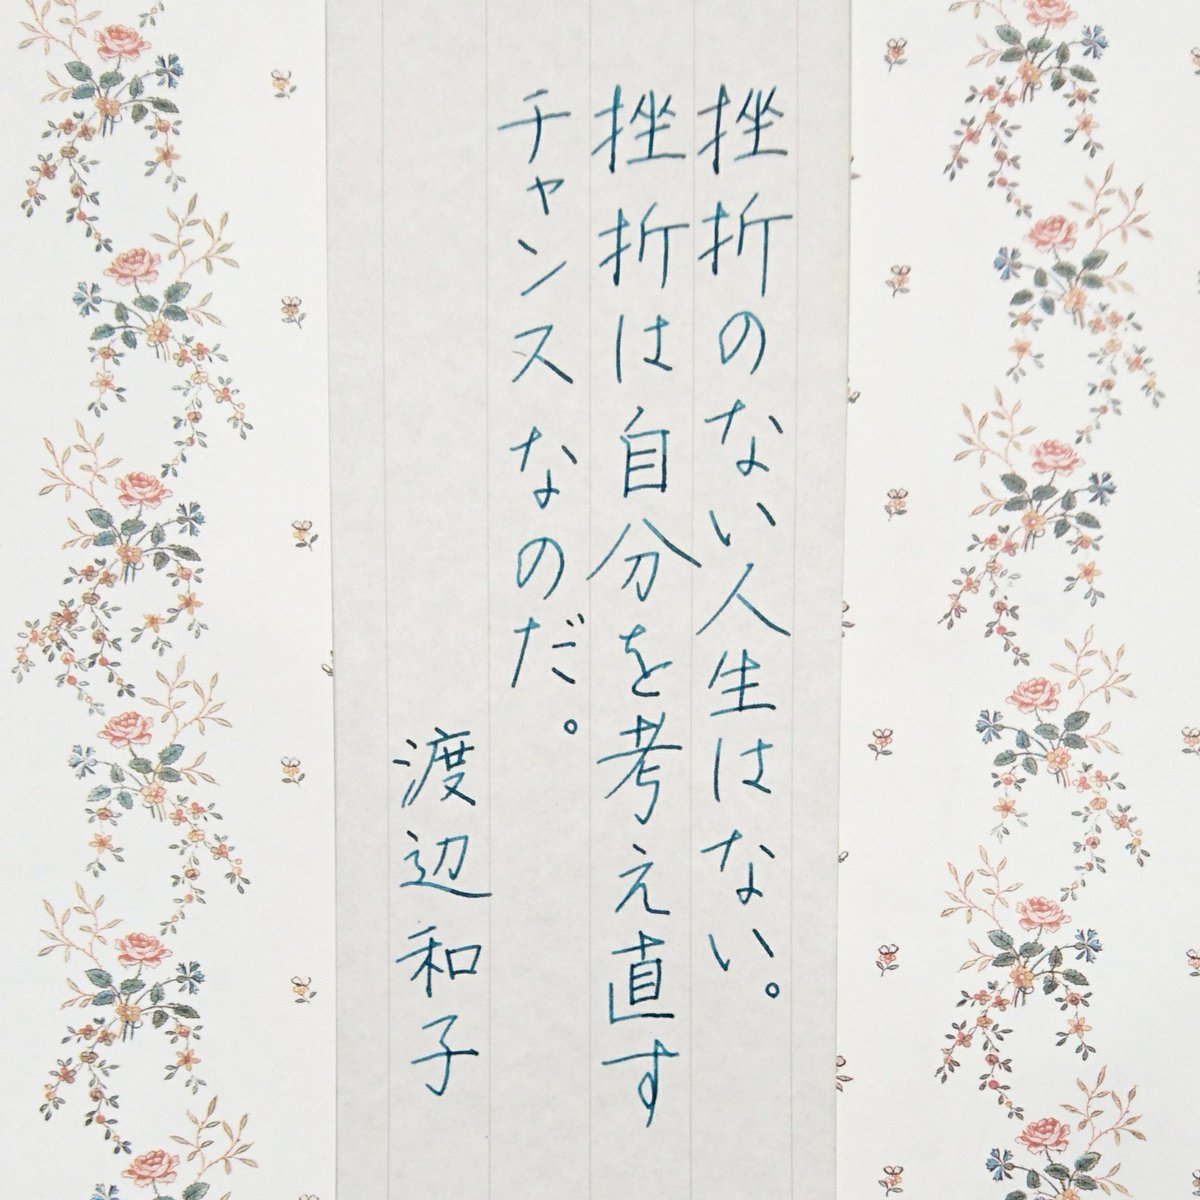 挫折のない人生はない。
挫折は自分を考え直す
チャンスなのだ。
渡辺和子